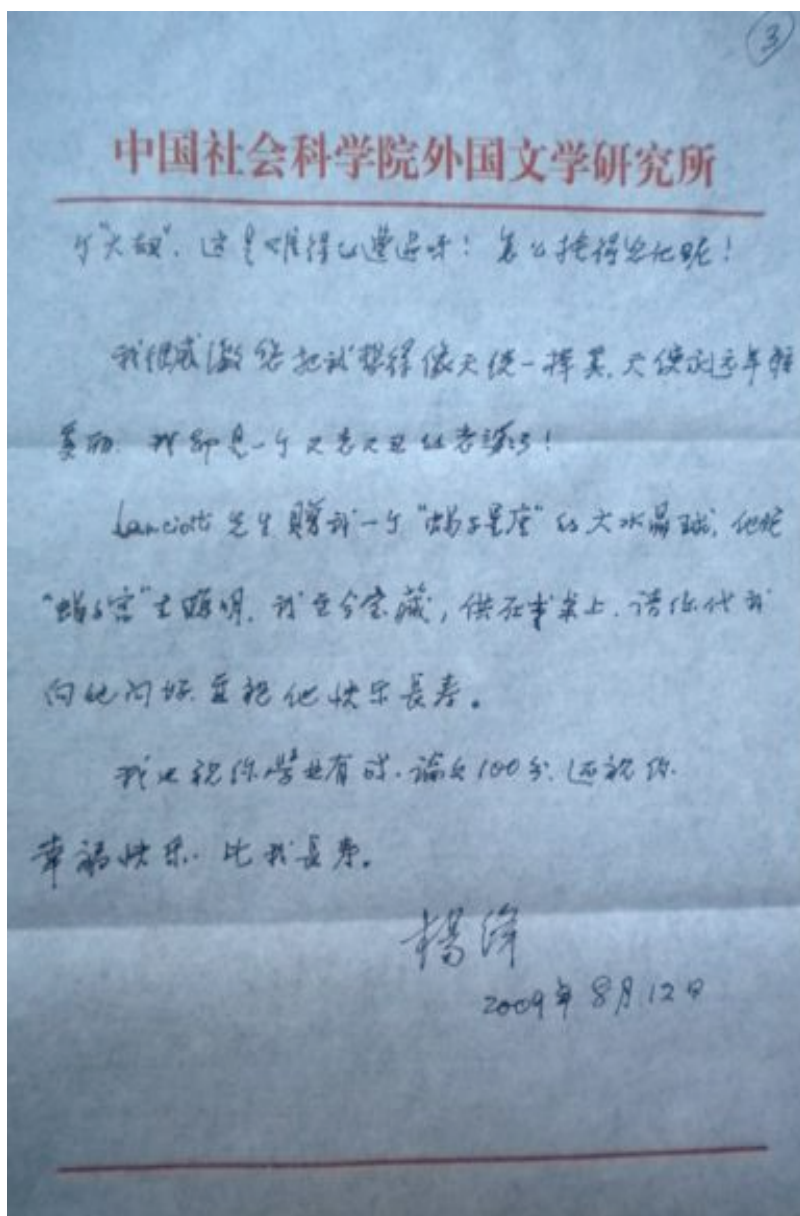 ③
中国社会科学院外国文学研究所
个"大奴". 这是难得的遭遇呀! 怎么
我很感激您把我想得像天使一样美. 天使永远年轻
美丽. 我却是一个又老又丑的老
Lanciotti 先生赠我一个"蝎子星座"的大水晶球, 他
"蝎子宫" 我至今宝藏, 供在书桌上. 请你代我
向他问好 并祝他快乐长寿。
我也祝你学业有成. 论文100分. 还祝你
幸福快乐. 比我长寿。
楊绛
2009年8月12日